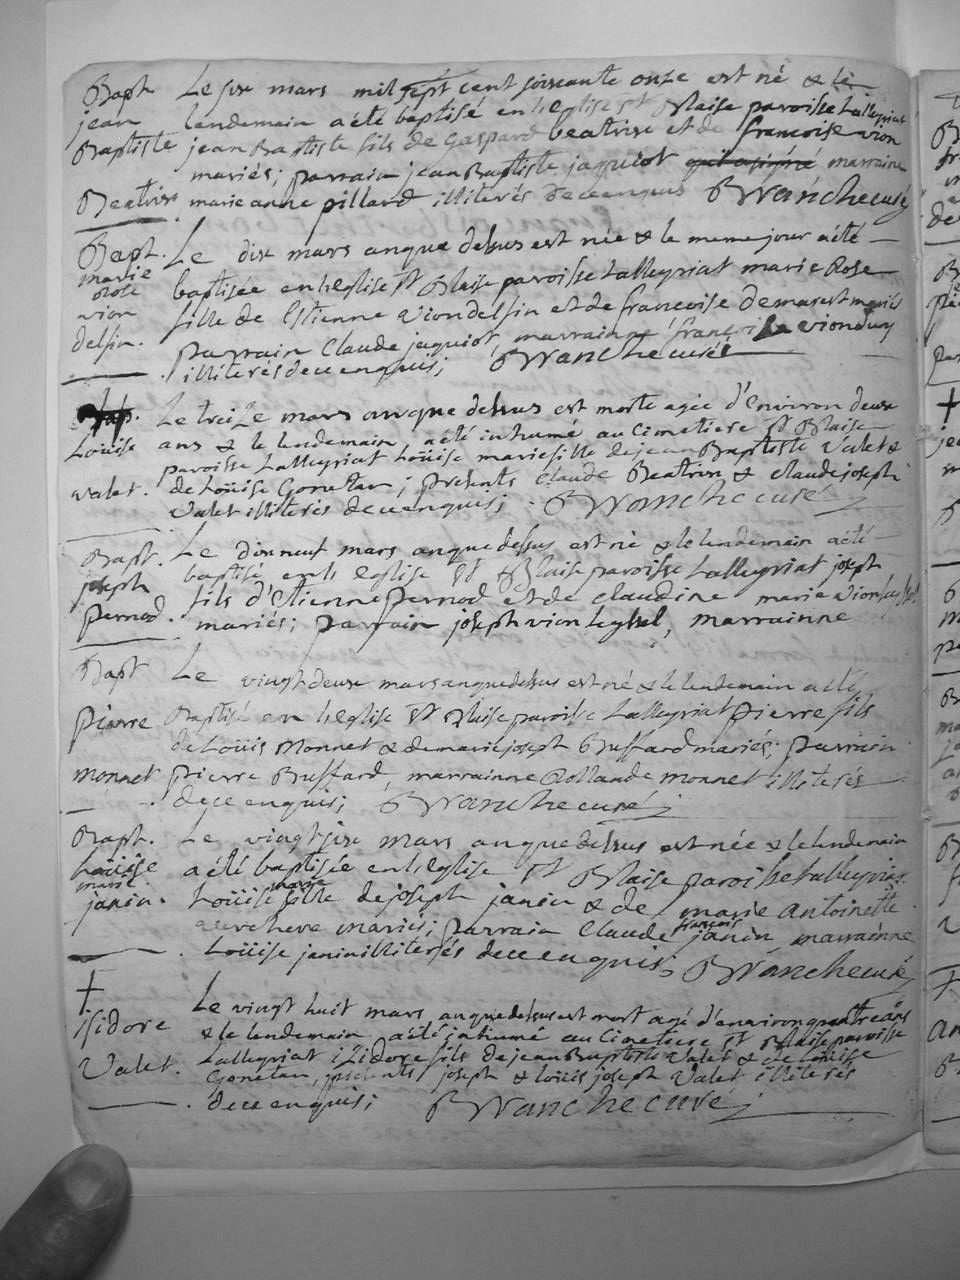 Bapt
jean
Baptiste
Beatrix
Le six mars mil sept cent soixante onze est né & le
lendemain a été baptisé en l'eglise St Blaise paroisse Lalleyriat
jean Baptiste fils de Gaspard beatrix et de francoise vion
mariés; parrain jean Baptiste jaquiot marraine
marie anne pillard illiterés de ce enquis Brvanche curé
Bapt.
marie
Rose
vion
delfin.
Le dix mars an que dessus est née & le meme jour a été
baptisée en l'eglise St Blaise paroisse Lalleyriat marie Rose
fille de Estienne vion delfin et de francoise demarest mariés
parrain Claude jaquiot, marrainne françoise vion
illiterés de ce enquis; Brvanche curé
Loüise
valet.
Le treize mars an que dessus est morte agée d'environ deux
ans & le lendemain, a été inhumé au Cimetiere St Blaise
paroisse Lalleyriat Loüise marie fille de jean Baptiste Valet &
de Loüise Gonetan; presents Claude Beatrix & claude joseph
Valet illiterés de ce enquis; Brvanche curé
Bapt.
joseph
pernod.
Le dix neuf mars an que dessus est né & le lendemain a été
baptisé en l'eglise St Blaise paroisse Lalleyriat joseph
fils d'Etienne pernod et de claudine marie vion
mariés; parrain joseph vion, marrainne
Bapt
pierre
monnet
Le vingt deux mars an que dessus est né & le lendemain a été
Baptisé en l'eglise St Blaise paroisse Lalleyriat pierre fils
de Loüis Monnet & de marie joseph Buffard mariés; parrain
pierre Buffard, marrainne Rollande monnet illiterés
de ce enquis; Brvanche curé
Bapt.
Loüise
marie
janin.
Le vingt six mars an que dessus est née & le lendemain
a été baptisée en l'eglise St Blaise paroisse Lalleyriat
Loüise marie fille de joseph janin & de marie Antoinette
mariés; parrain Claude françois janin, marrainne
Loüise janin illiterés de ce enquis; Brvanche curé
†
isidore
Valet.
Le vingt huit mars an que dessus est mort agé d'environ quatre ans
& le lendemain a été inhumé au Cimetiere St Blaise paroisse
Lalleyriat isidore fils de jean Baptiste Valet & de Loüise
Gonetan, presents joseph & loüis joseph Valet illiterés
de ce enquis; Brvanche curé